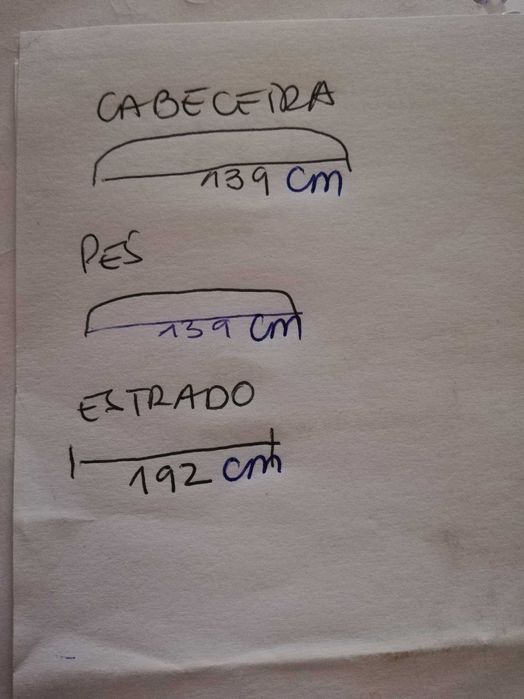 CABECEIRA
139 cm
PÉS
139 cm
ESTRADO
192 cm